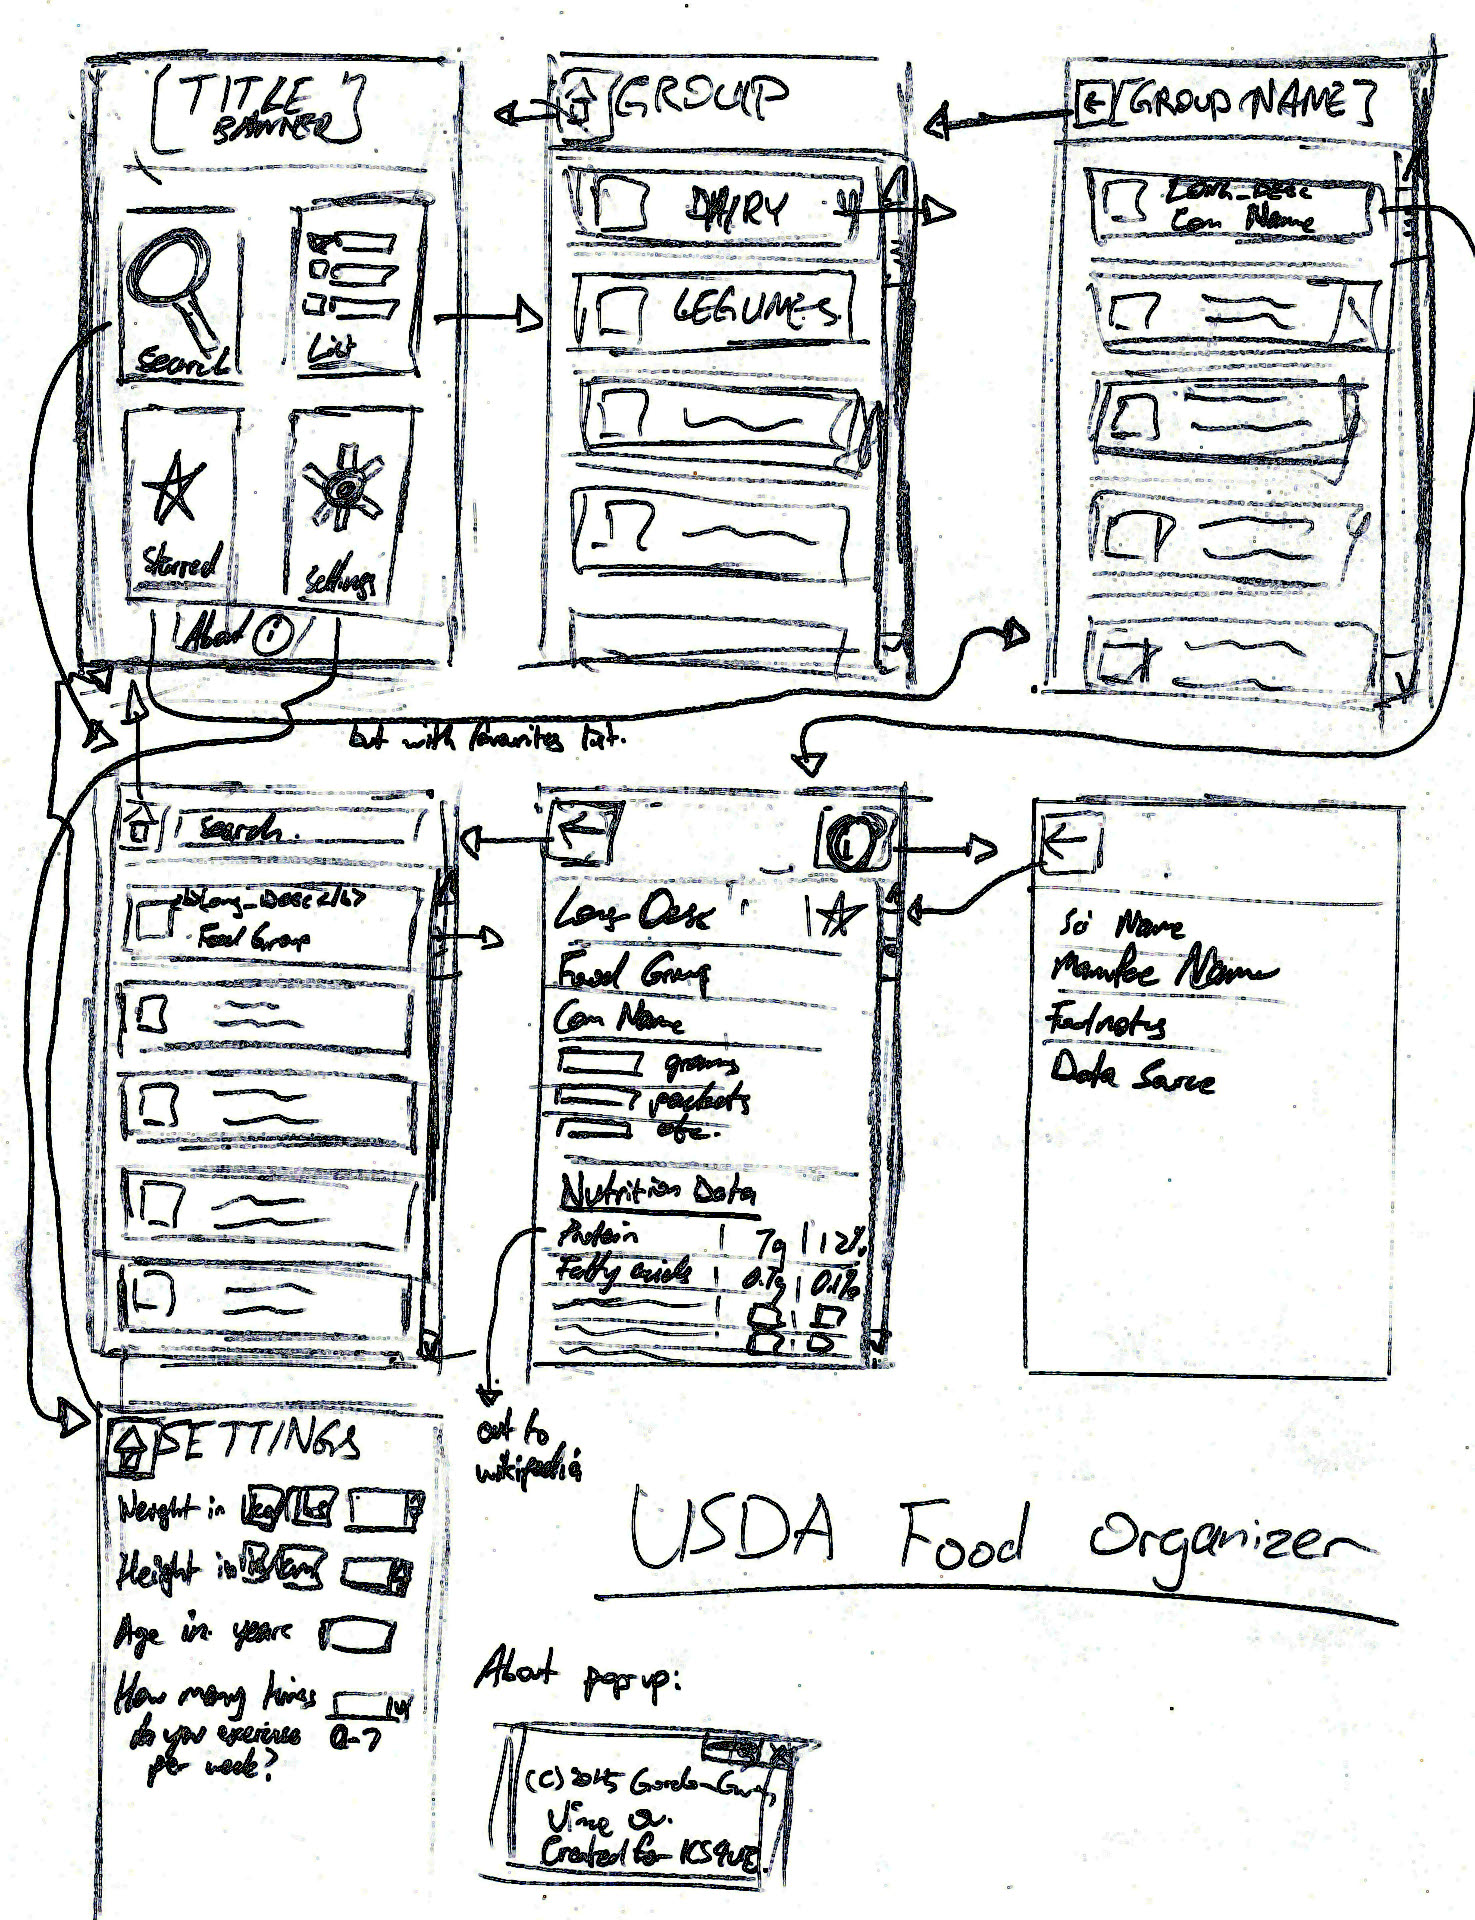 [TITLE
BANNER]
Search
List
Starred
Settings
About i
GROUP
DAIRY
LEGUMES
[GROUP NAME]
Long_Desc
Com Name
but with favourites list.
Search
<b>Long_Desc</b>
Food Group
i
Long Desc
Food Group
Com Name
grams
packets
etc.
Nutrition Data
Protein | 7g | 12%
Fatty acids | 0.7g | 0.1%
out to
wikipedia
Sci Name
Manufac Name
Footnotes
Data Source
SETTINGS
Weight in kg/lbs
Height in
Age in years
How many times
do you exercise
per week?
0-7
USDA Food Organizer
About popup:
(C) 2015 Gordon
Created for ICS4UE